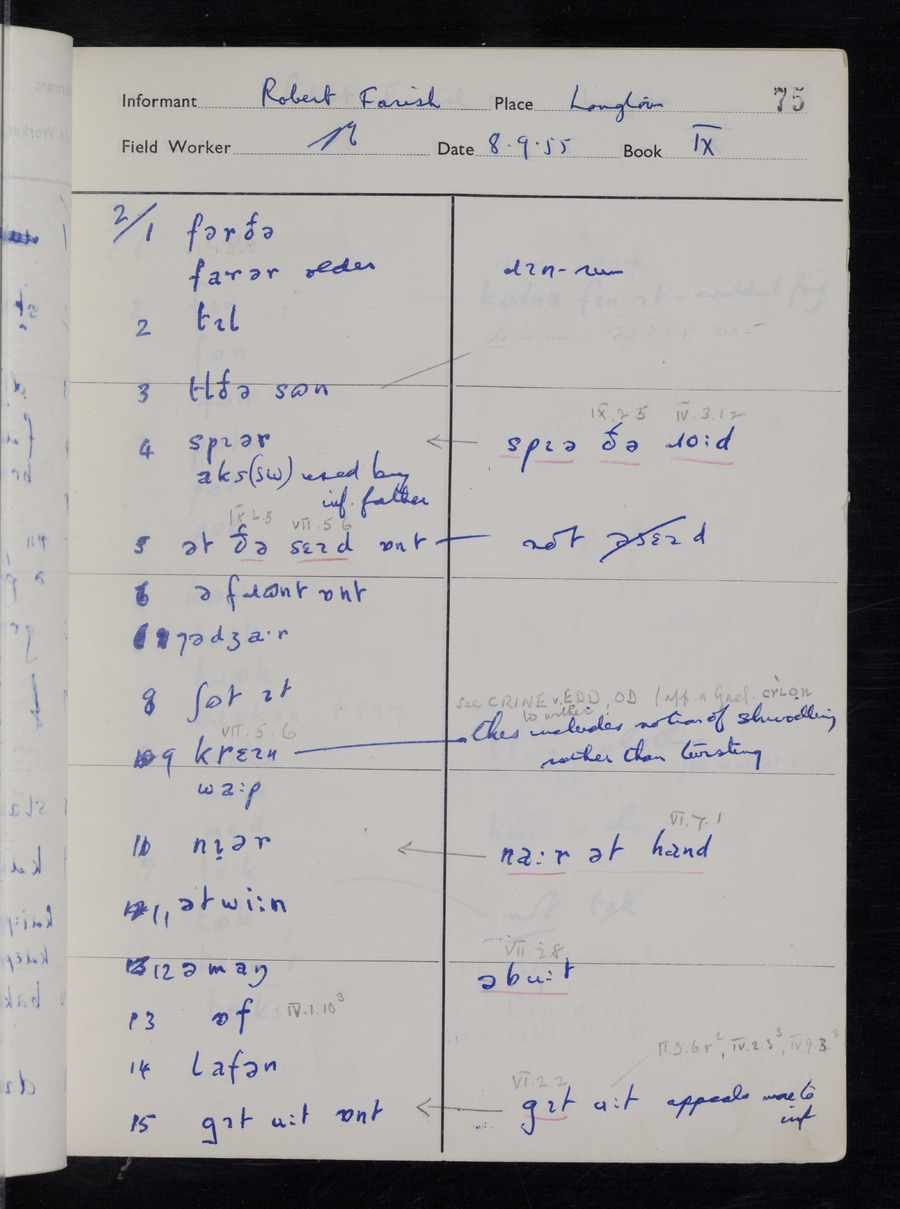 Informant Robert Farish Place Longtown 75
Field Worker Date 8.9.55 Book IX
2/1 fərðə
farər older dɪn-
2 tɪl
3 tlðə sɷn
IX.2.5 IV.3.12
4 spɪər ← spɪə ðə ɹo:d
aks (sw) used by
inf. father
IX.2.5 VII.5.6
5 ət ðə sɛɪd ɒnt not əsɛɪd
6 ə fɹɷnt ɒnt
7 ədʒa·r
8 ʃɷt ɪt
see CRINE v. EDD, OD
to wither
VII.5.6
9 krɛɪn this includes notion of shrivelling
rather than twisting
wa:p
VI.7.1
10 nɪ̣ər ← na:r ət hand
11 ətwi:n
VII.2.8
12 əmaŋ əbu:t
13 ɒf IV.1.10³
II.3.6r², IV.2.3³, IV.9.3³
14 lafən
VI.2.2
15 gɪt u:t ɒnt ← gɪt u:t appeals more to
inf